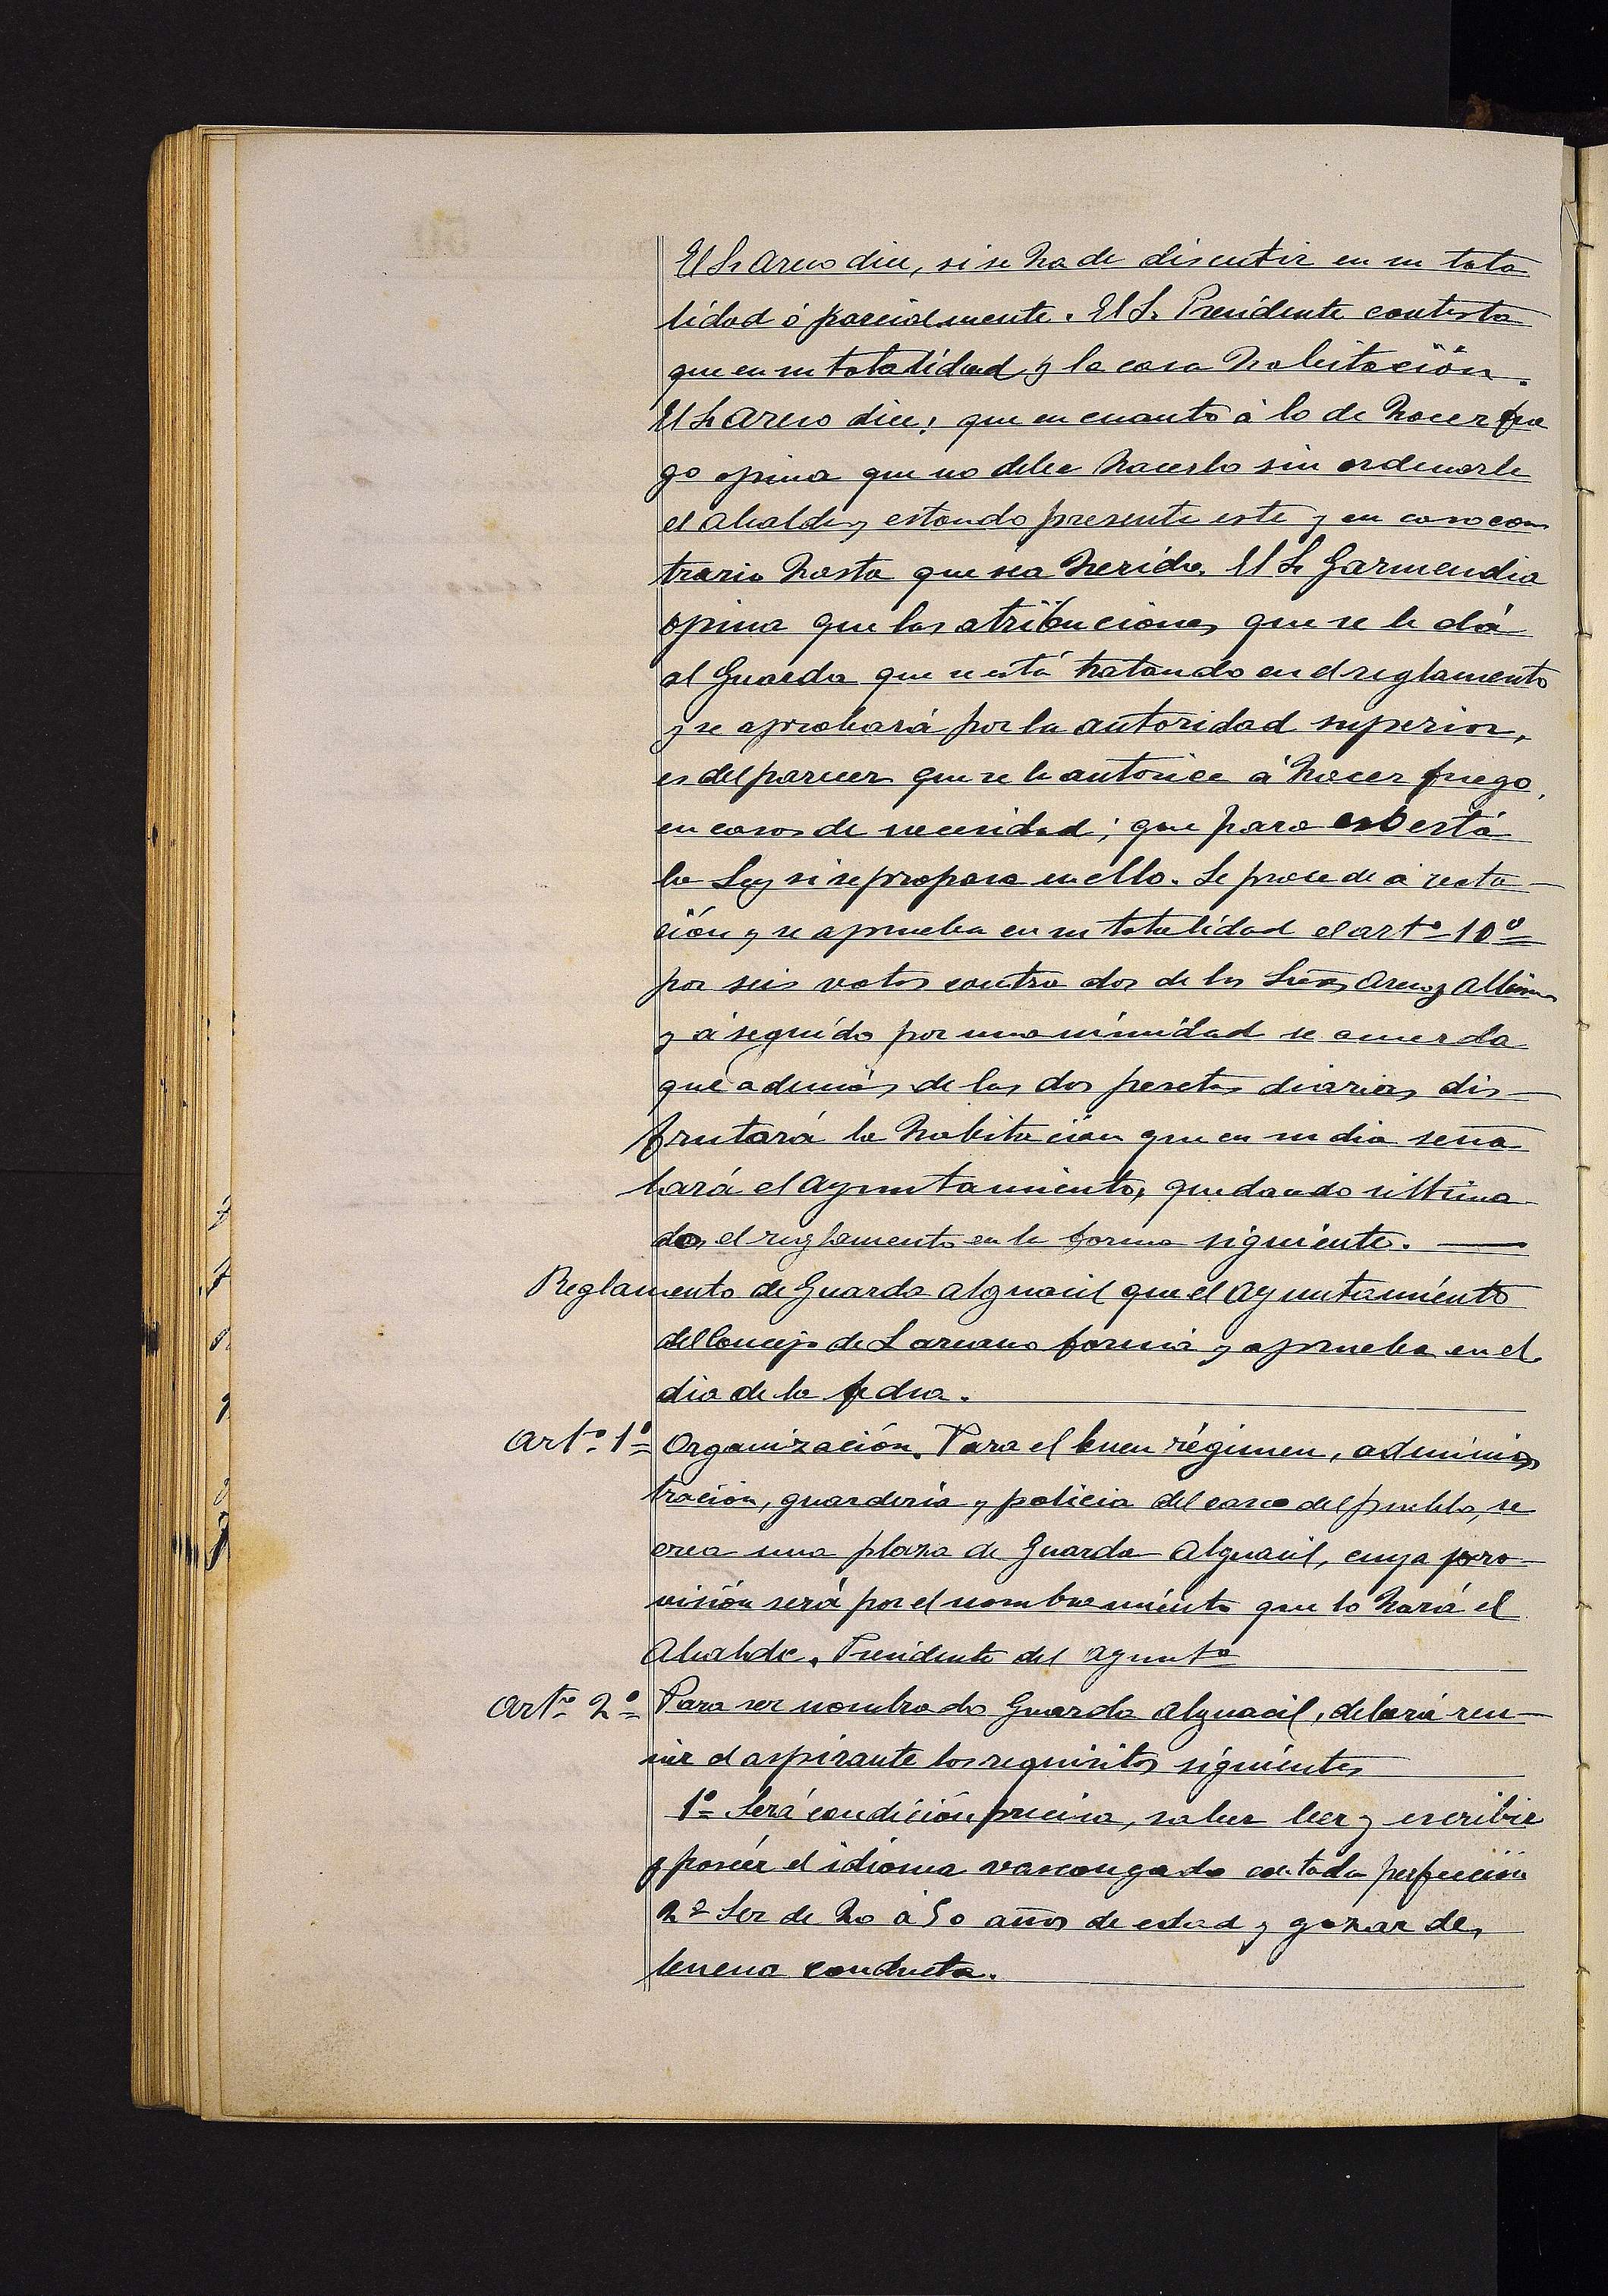 El Sr Areso dice, si se ha de discutir en su tota
lidad ó parcialmente. El Sr. Presidente contesta
que en su totalidad y la casa habitación.
El Sr Areso dice: que en cuanto á lo de hacer fue
go opina que no debe hacerlo sin ordenarle
el alcalde, estando presente este y en caso con
trario hasta que sea herido. El Sr Garmendia
opina que las atribuciones que se le dá
al Guarda que se está tratando en el reglamento
y se aprobará por la autoridad superior,
es del parecer que se le autorice á hacer fuego,
en casos de necesidad; que para eso está
la Ley si se propasa en ello. Se procede á vota-
ción y se aprueba en su totalidad el artº 10º
por seis votos contra dos de los Sres Areso y
y á seguido por unanimidad se acuerda
que además de las dos pesetas diarias dis-
frutará la habitación que en su dia seña
lará el Ayuntamiento, quedando ultima
do, el reglamento en la forma siguiente.
Reglamento de Guarda alguacil que el Ayuntamiento
del Concejo de Larraun forma y aprueba en el
dia de la fecha.
Artº 1º Organización. Para el buen régimen, adminis
tración, guarderia y policia del casco del pueblo, se
crea una plaza de Guarda Alguacil, cuya pro-
visión será por el nombramiento que lo hará el
Alcalde. Presidente del Ayuntº
Artº 2º Para ser nombrado Guarda alguacil, deberá reu-
nir el aspirante los requisitos siguientes
1º Será condición precisa, saber leer y escribir
y poseér el idioma vascongado con toda perfección
2º Ser de 20 á 50 años de edad y gozar de,
buena conducta.